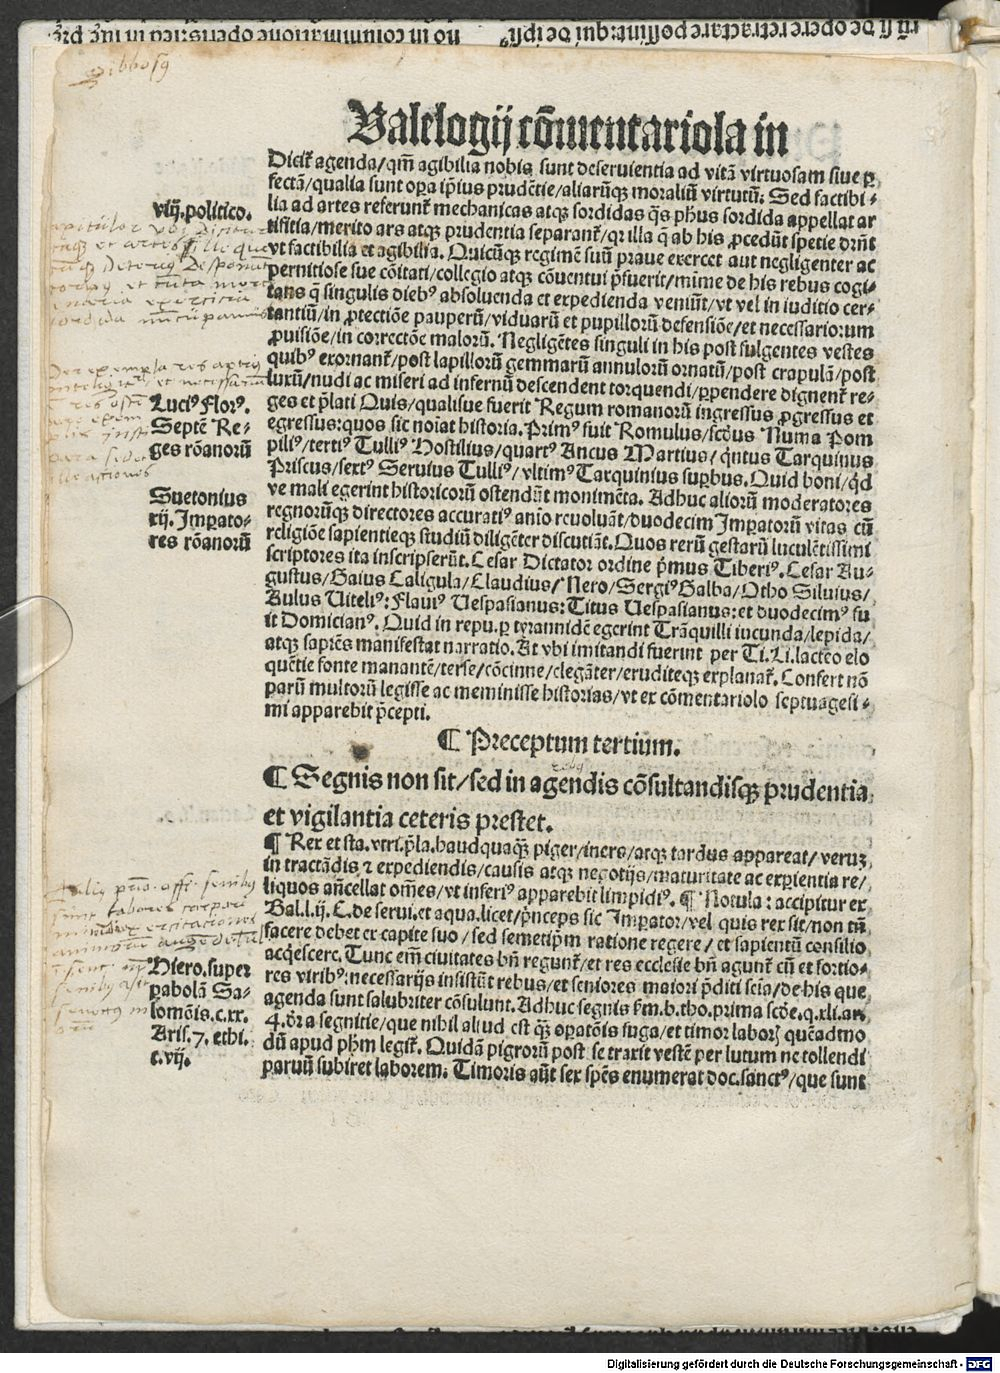 Valelogij cōmentariola in
Dicit᷑ agenda/qm̄ agibilia nobis sunt deseruientia ad vitā virtuosam siue ꝑ
fectā/qualia sunt oꝑa ip̄ius prudētie/aliarūq̄ꝫ moraliū virtutū: Sed factibi⸗
lia ad artes referunt᷑ mechanicas atqꝫ sordidas q̄s ph̄us sordida appellat ar
tifitia/merito ars atqꝫ prudentia separant᷑/qꝛ illa q̄ ab his ꝓcedūt spetie drn̄t
vt factibilia et agibilia. Quicūqꝫ regimē suū praue exercet aut negligenter ac
pernitiose sue cōitati/collegio atqꝫ cōuentui p̄fuerit/mime de his rebus cogi⸗
tans q̄ singulis diebꝰ absoluenda et expedienda veniūt/vt vel in iuditio cer⸗
tantiū/in ꝓtectiōe pauperū/viduarū et pupillorū defensiōe/et necessariorum
ꝓuisiōe/in correctōe malorū. Negligētes singuli in his post fulgentes vestes
quibꝰ exornant᷑/post lapillorū gemmarū annulorū ornatū/post crapulā/post
luxū/nudi ac miseri ad infernū descendent torquendi/ꝑpendere dignent᷑ re⸗
ges et p̄lati Quis/qualisue fuerit Regum romanorū ingressus ꝓgressus et
egressus:quos sic noīat historia. Primꝰ fuit Romulus/scd̄us Numa Pom
piliꝰ/tertiꝰ Tulliꝰ Hostilius/quartꝰ Ancus Martius/q̄ntus Tarquinus
Priscus/sextꝰ Seruius Tulliꝰ/vltimꝰ Tarquinius suꝑbus. Quid boni/qd̄
ve mali egerint historicorū ostendūt monimēta. Adhuc aliorū moderatores
regnorūqꝫ directores accuratiꝰ anīo reuoluāt/duodecim Imꝑatorū vitas cū
religiōe sapientieqꝫ studiū diligēter discutiāt. Quos rerū gestarū luculētissimi
scriptores ita inscripserūt. Cesar Dictator ordine p̄mus Tiberiꝰ. Cesar Au⸗
gustus/Gaius Caligula/Claudius/Nero/Sergiꝰ Galba/Otho Siluius/
Aulus Viteliꝰ: Flauiꝰ Vespasianus: Titus Vespasianus: et duodecimꝰ fu
it Domicianꝰ. Quid in repu. ꝑ tyrannidē egerint Trāquilli iucunda/lepida/
atqꝫ saprēs manifestat narratio. At vbi imitandi fuerint per Ti. Li. lacteo elo
quētie fonte manantē/terse/cōcinne/elegāter/eruditeqꝫ explanat᷑. Confert nō
parū multorū legisse ac meminisse historias/vt ex cōmentariolo septuagesi⸗
mi apparebit p̄cepti.
viij. politico.
Luciꝰ Florꝰ.
Septē Re⸗
ges rōanorū
Suetonius
xij. Imꝑato⸗
res rōanorū
¶ Preceptum tertium.
¶ Segnis non sit/sed in agendis cōsultandisqꝫ prudentia
et vigilantia ceteris prestet.
¶ Rex et sta. vtri. p̄la. haudquaqꝫ piger/iners/atqꝫ tardus appareat/veruꝫ
in tractādis ⁊ expediendis/causis atqꝫ negotijs/maturitate ac exꝑientia re/
liquos an̄cellat om̄es/vt inferiꝰ apparebit limpidiꝰ. ¶ Notula: accipitur ex
Bal. l. ij. C. de serui. et aqua. licet/p̄nceps sic Imꝑator/vel quis rex sit/non tn̄
facere debet ex capite suo/sed semetip̄m ratione regere/et sapientū consilio
acq̄escere. Tunc em̄ ciuitates bn̄ regunt᷑/et res ecclesie bn̄ agunt᷑ cū et fortio⸗
res viribꝰ: necessarijs insistūt rebus/et seniores maiori p̄diti scīa/de his que
agenda sunt salubriter cōsulunt. Adhuc segnis ẜm. b. tho. prima scd̄e. q. xli. ar.
4. dr̄ a segnitie/que nihil aliud est qꝫ oꝑatōnis fuga/et timor laborꝫ quēadmo
dū apud ph̄m legit᷑. Quidā pigrorū post se traxit vestē per lutum ne tollendi
paruū subiret laborem: Timoris aūt sex sp̄es enumerat doc. sanctꝰ/que sunt
Hiero. super
ꝑabolā Sa⸗
lomōis. c. xx.
Aris. 7. ethi.
c. vij.
Digitalisierung gefördert durch die Deutsche Forschungsgemeinschaft - DFG